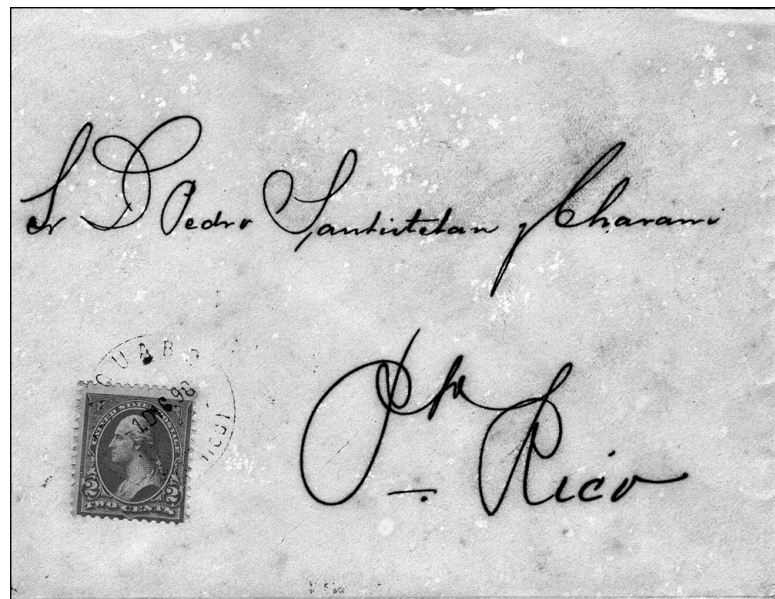 Sr D Pedro Santisteban y Chavarri
Pto Rico
UNITED STATES POSTAGE
2 2
TWO CENTS